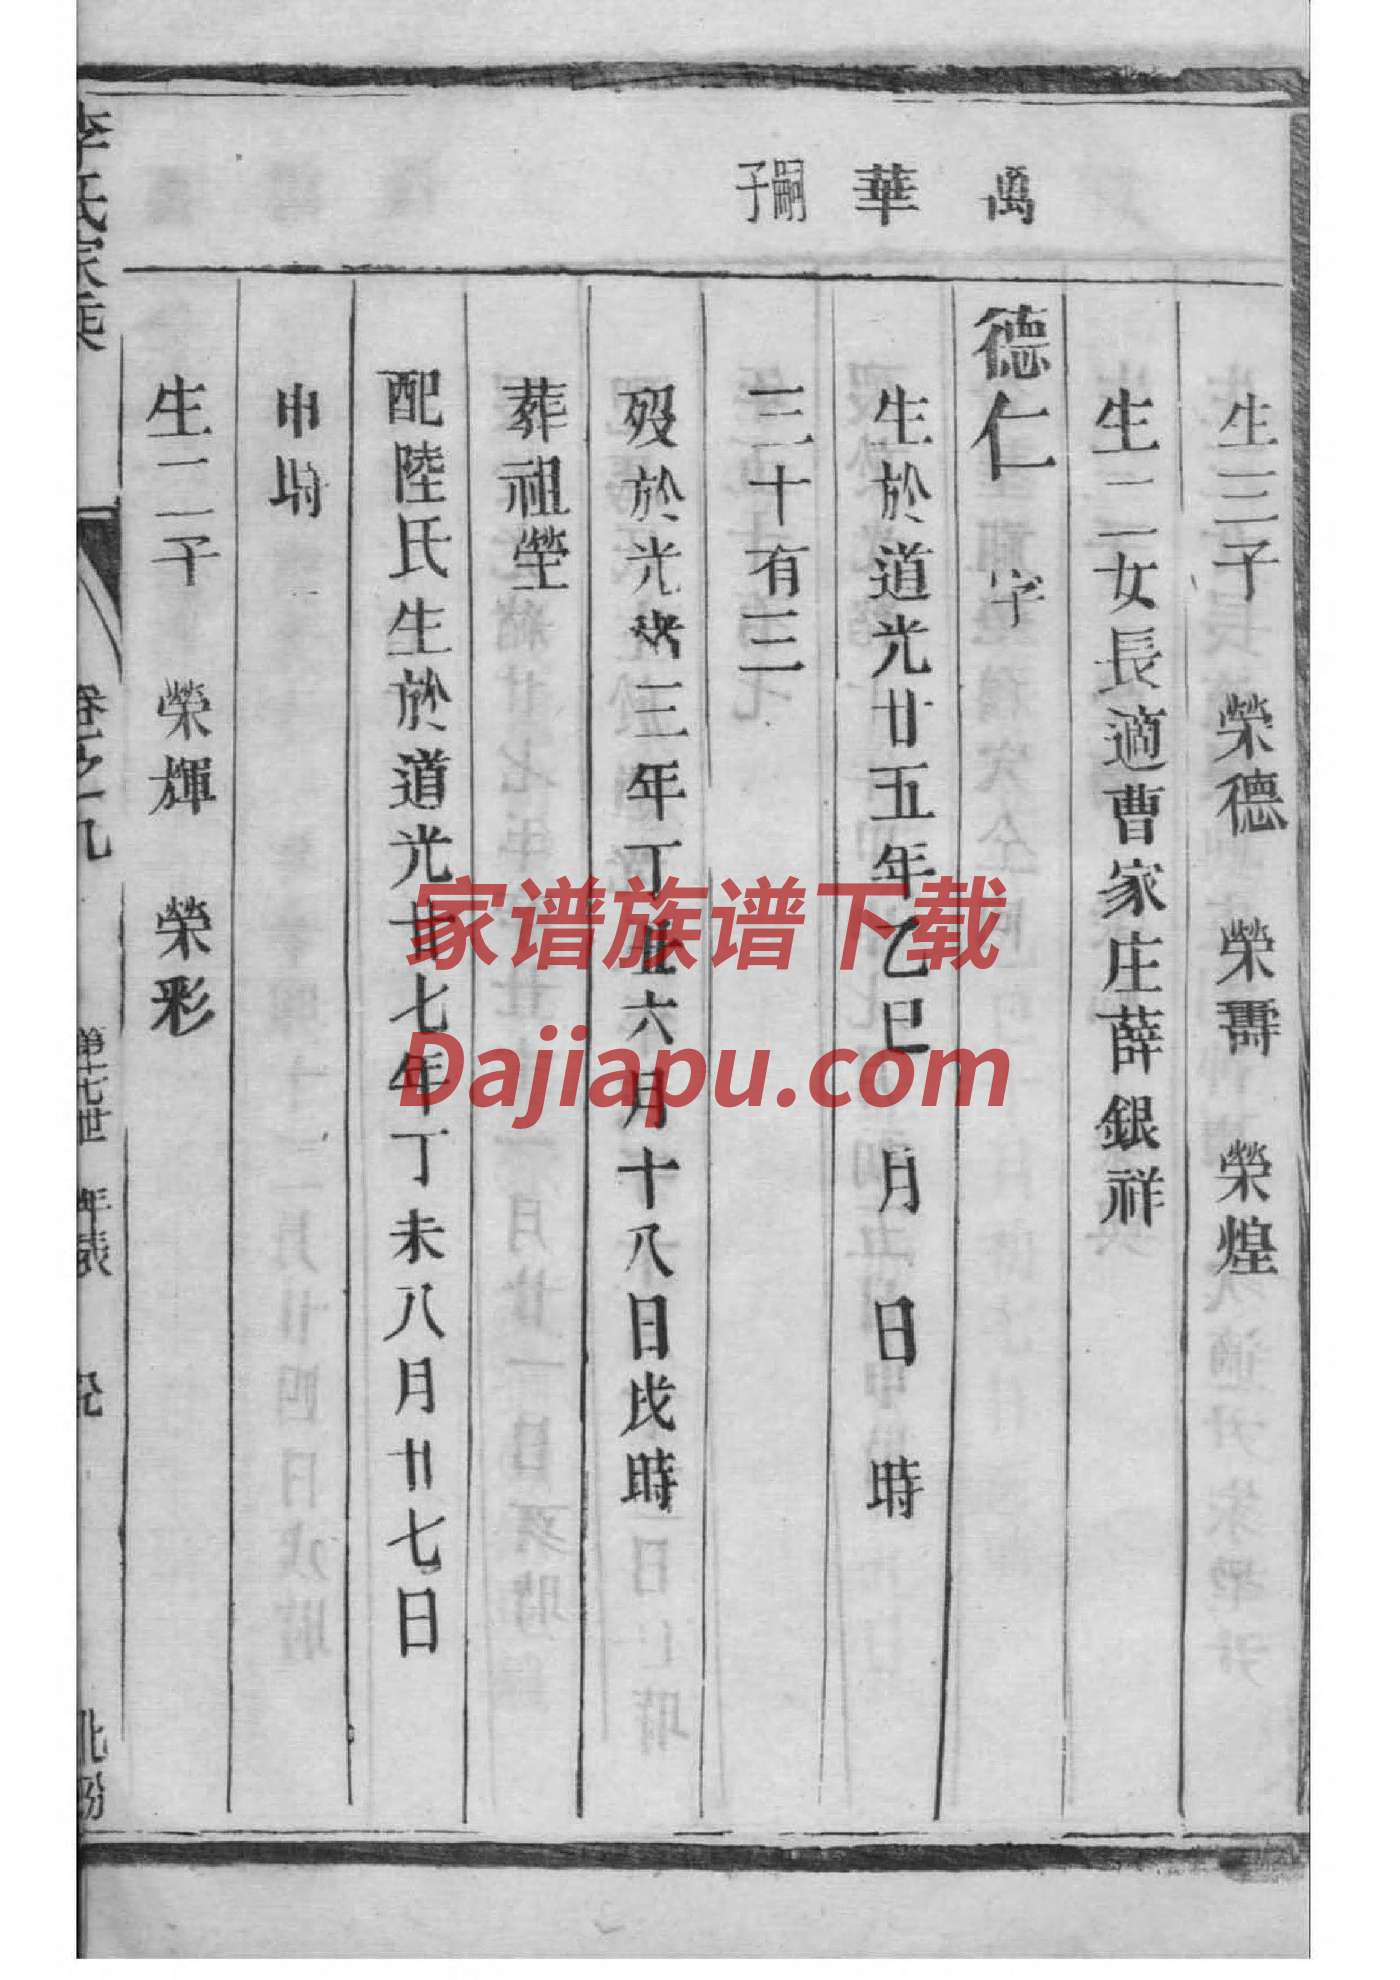 萬
華
嗣子
生三子 榮德 榮壽 榮煌
生二女長適曹家庄薛銀祥
德仁 字
生於道光廿五年乙巳 月 日 時
三十有三
歿於光緒三年丁丑六月十八日戌時
葬祖塋
配陸氏生於道光廿七年丁未八月廿七日
申時
生二子 榮輝 榮彩
李氏家乘 卷之九 第十七世 年表
家谱族谱下载
Dajiapu.com